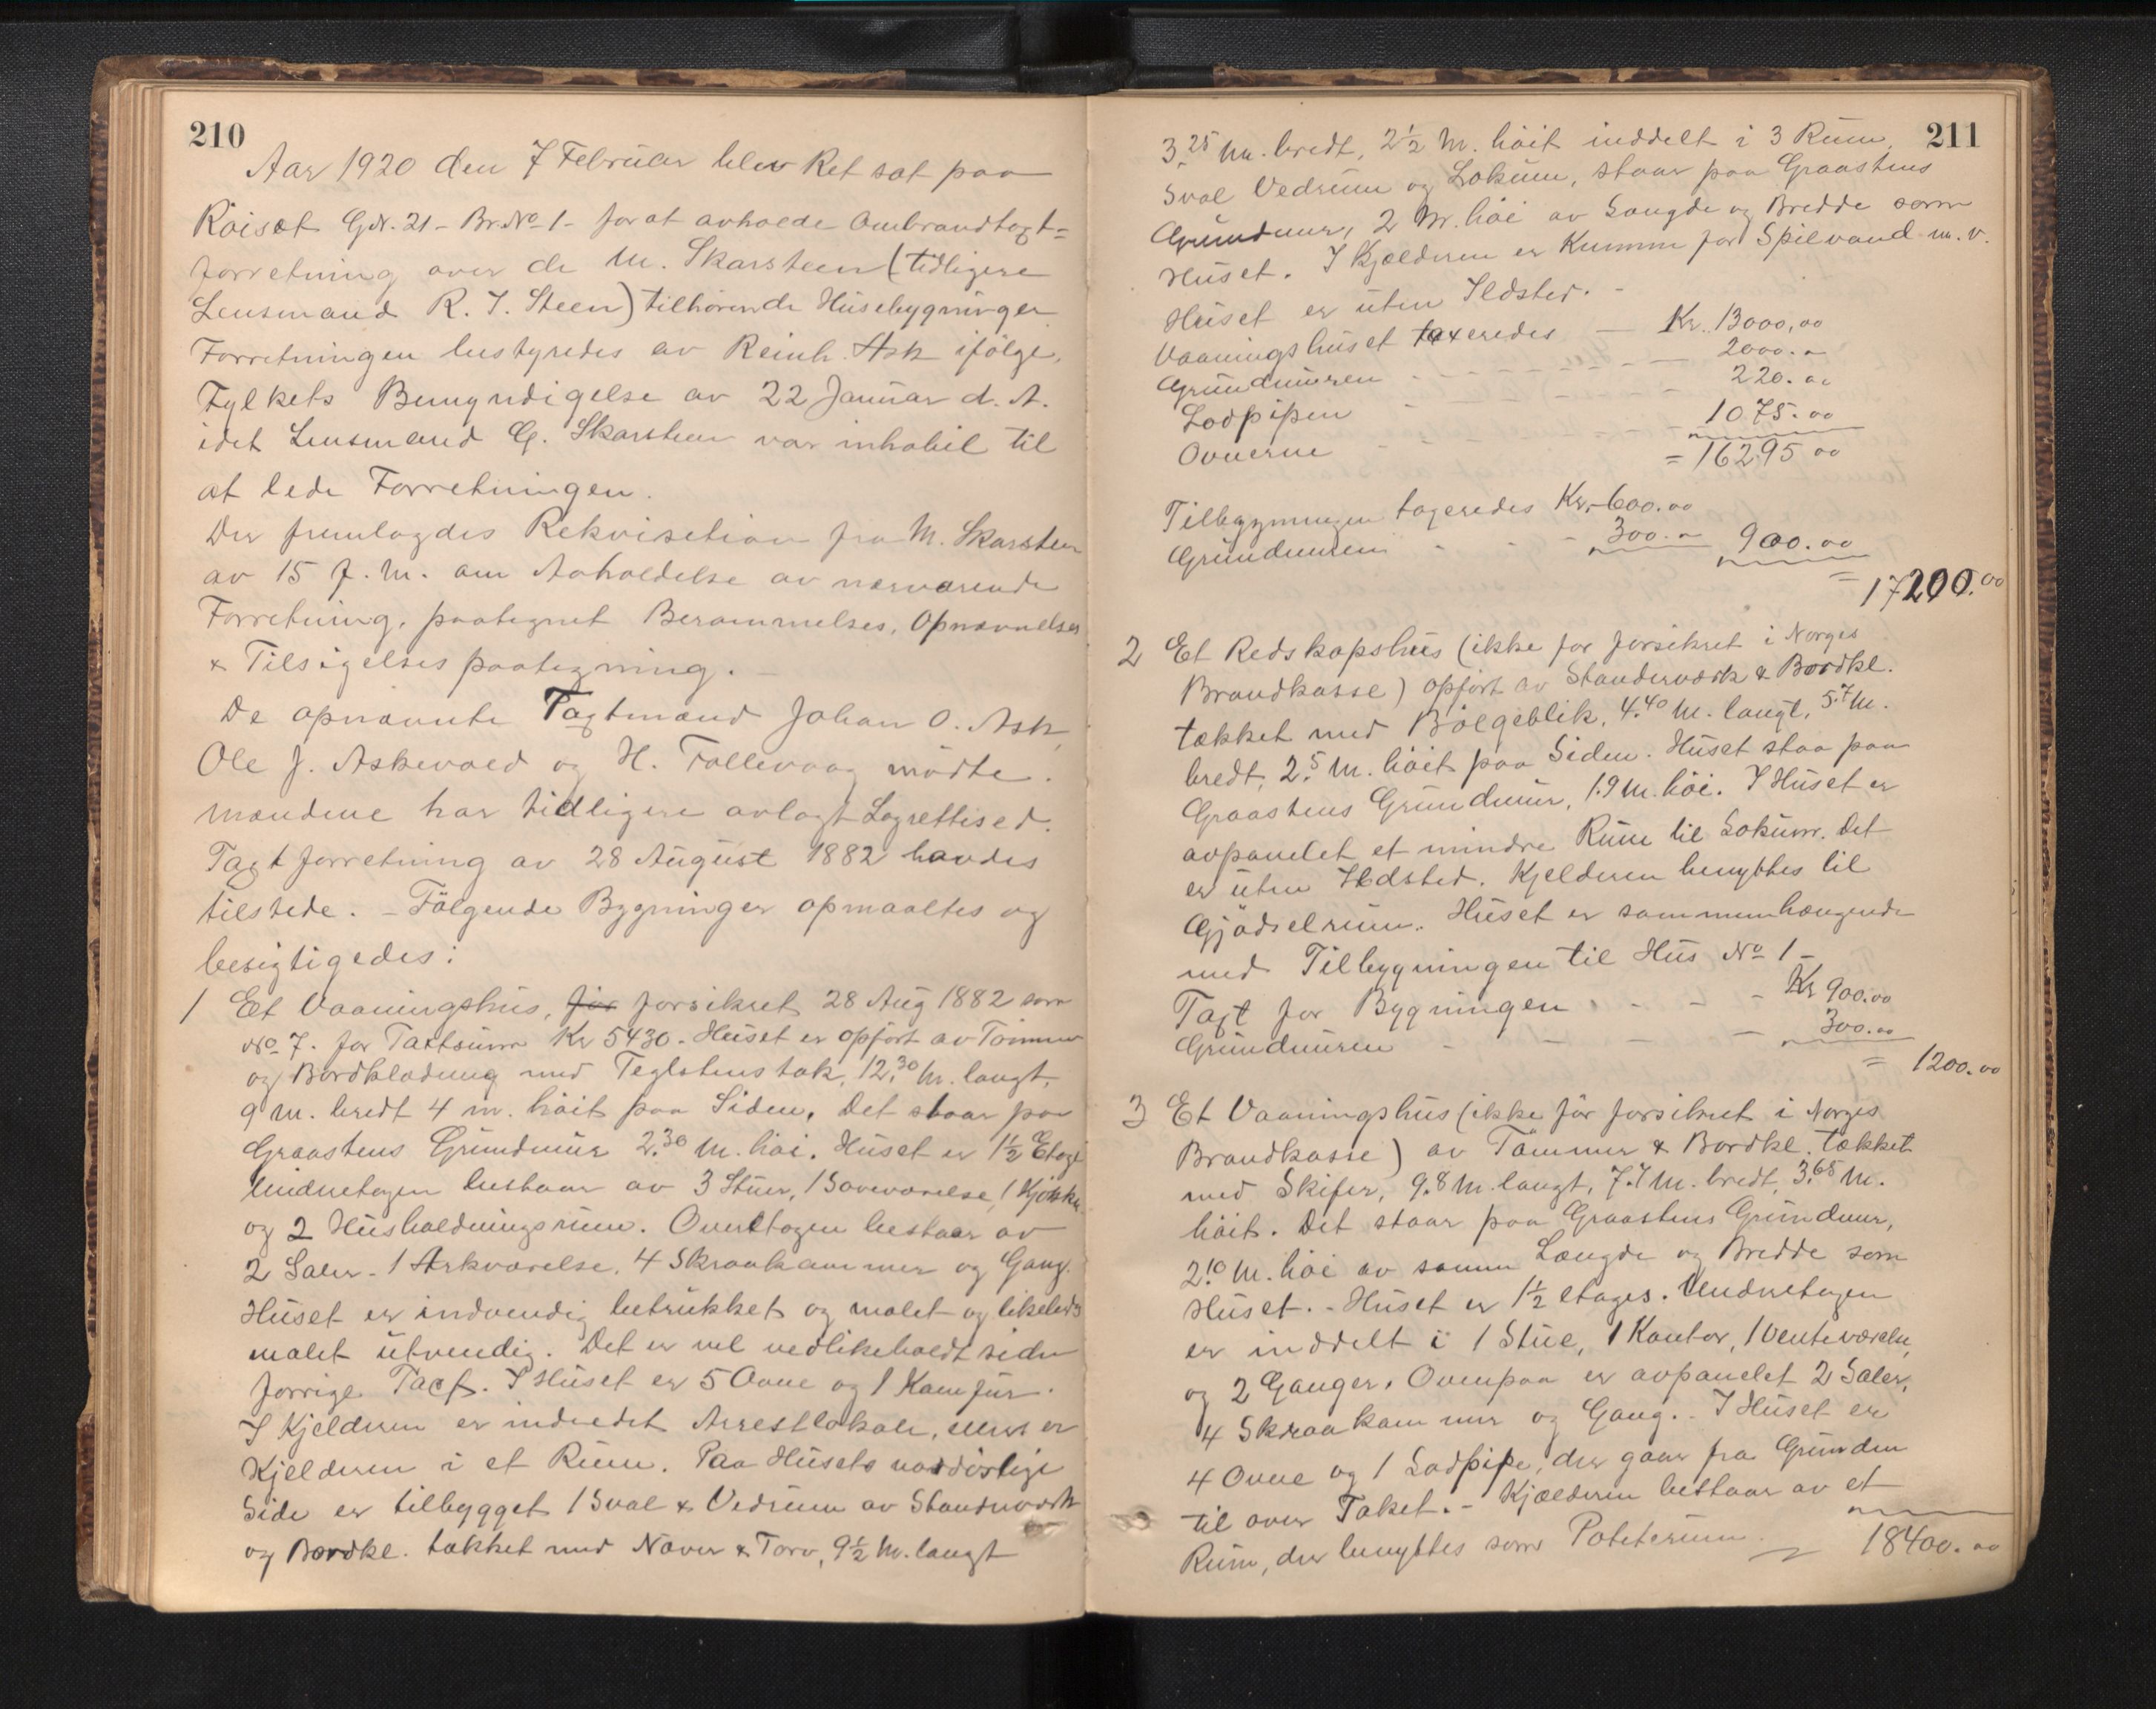 210
Aar 1920 den 7 Februar blev Ret sat paa
Röiset G.N. 21 - Br.No 1 - for at avholde Ombrandtaxt=
forretning over de M. Skarsteen (tidligere
Lensmand R. J. Steen) tilhörende Husebygninger
Forretningen bestyredes av Reinh. Ask ifölge
Fylkets Bemyndigelse av 22 Januar d. A.
idet Lensmand G. Skarsteen var inhabil til
at lede Forretningen.
Der fremlagdes Rekvisition fra M. Skarsteen
av 15 f. M. om Avholdelse av nærværende
Forretning, paategnet Berammelses, Opnævnelses
& Tilsigelses paategning. -
De opnævnte Taxtmænd Johan O. Ask,
Ole J. Askevold og H. Follevaag mödte.
Mændene har tidligere avlagt Lagrettesed.
Taxtforretning av 28 August 1882 havdes
tilstede. - Fölgende Bygninger opmaaltes og
besigtigedes:
1 Et Vaaningshus, för forsikret 28 Aug 1882 som
No 7. for Taxtsum Kr 5430. Huset er opfört av Tömmer
og Bordklædning med Teglstenstak, 12.30 M. langt,
9 M. bredt 4 m. höit paa Siden. Det staar paa
Graastens Grundmur 2.30 M. höi. Huset er 1½ Etage
Undretagen bestaar av 3 Stuer, 1 Soveværelse, 1 Kjökken
og 2 Husholdningsrum. Overetagen bestaar av
2 Saler - 1 Arkværelse, 4 Skraakammer og Gang.
Huset er indvendig betrukket og malet og likeledes
malet utvendig. Det er vel vedlikeholdt siden
forrige Taxt. I Huset er 5 Ovne og 1 Komfür.
I Kjelderen er indredet Arrestlokale, ellers er
Kjelderen i et Rum. Paa Husets nordöstlige
Side er tilbygget 1 Sval & Vedrum av Standerværk
og Bordkl. tækket med Næver & Torv, 9½ M. langt
211
3.25 M. bredt, 2½ M. höit inddelt i 3 Rum,
Sval Vedrum og Lokum, staar paa Graastens
Grundmur, 2 M. höi av Længde og Bredde som
Huset. I Kjælderen er Kumme for Spilvand m. v.
Huset er uten Ildsted. -
Vaaningshuset taxeredes - Kr. 13000,00
Grundmuren - - - - - 2000.00
Lodpipen - - - - - 220.00
Ovnerne - - - - - 1075.00
= 16295 00
Tilbygningen taxeredes Kr. 600.00
Grundmuren - - - 300.00 900.00
= 17200.00
2 Et Redskapshus (ikke för forsikret i Norges
Brandkasse) opfört av Standerværk & Bordkl.
tækket med Bölgeblik, 4.40 M. langt, 5.7 M.
bredt, 2.5 M. höit paa Siden. Huset staa paa
Graastens Grundmur, 1.9 M. höi. I Huset er
avpanelet et mindre Rum til Lokum. Det
er uten Ildsted. Kjelderen benyttes til
Gjödselrum. Huset er sammenhængende
med Tilbygningen til Hus No 1 -
Taxt for Bygningen - - - Kr 900.00
Grundmuren - - - - 300.00
= 1200.00
3 Et Vaaningshus (ikke för forsikret i Norges
Brandkasse) av Tömmer & Bordkl. tækket
med Skifer, 9.8 M. langt, 7.7 M. bredt, 3.65 M.
höit. Det staar paa Graastens Grundmur,
2.10 M. höi av samme Længde og Bredde som
Huset. - Huset er 1½ etages. Undretagen
er inddelt i 1 Stue, 1 Kontor, 1 Venteværelse,
og 2 Ganger. Ovenpaa er avpanelet 2 Saler,
4 Skraakammer og Gang. - I Huset er
4 Ovne og 1 Lodpipe, der gaar fra Grunden
til over Taket. - Kjælderen bestaar av et
Rum, der benyttes som Poteterum.
18400.00